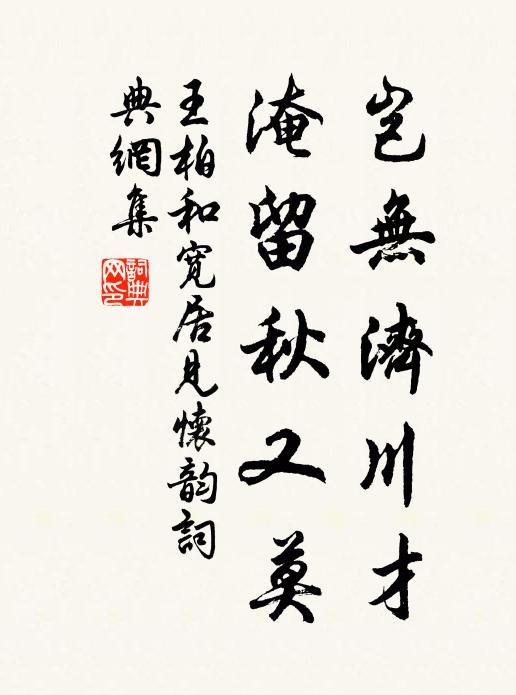 豈無濟川才
淹留秋又莫
王柏和寬居見懷韵詞
典網集
詞典
网印